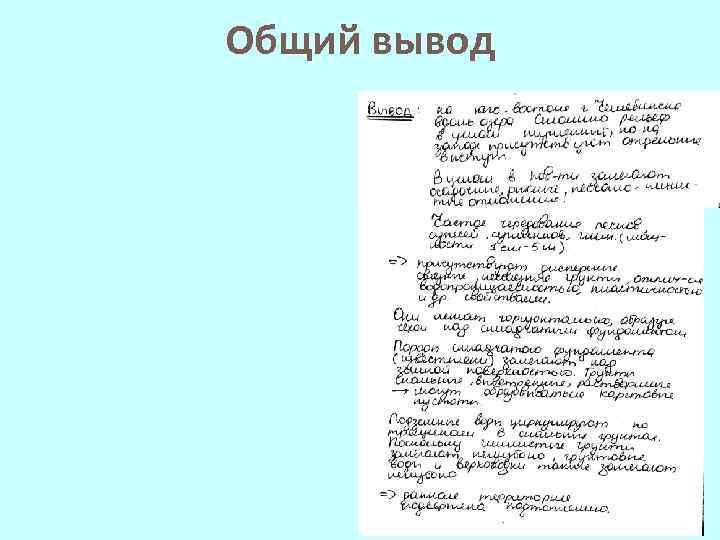 Общий вывод
Вывод: на юго-востоке г. Челябинска
вдоль озера Смолино рельеф
в целом, но на
западе присутствует
выступ.
В целом в пов-ти залегают
песчано-глинис-
тые отложения.
Частое чередование песков
супесей, суглинков, глин. (мощ-
ности 1 см - 5 м)
=> присутствуют дисперсные
связные, несвязные грунты отлич-ся
водопроницаемостью, пластичностью
и др. свойствами.
Они лежат горизонтально, образуя
чехол над складчатым фундаментом
Породы складчатого фундамента
(известняки) залегают под
земной поверхностью. Грунты
скальные, выветрелые,
→ могут образовывать карстовые
пустоты.
Подземные воды циркулируют по
трещинам в скальных грунтах.
Поскольку глинистые грунты
залегают неглубоко, грунтовые
воды и верховодки также залегают
неглубоко
=> данная территория
подвержена подтоплению.